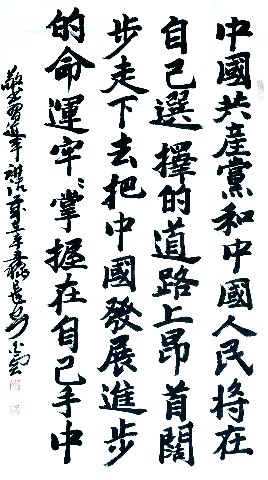 中國共産黨和中國人民將在
自己選擇的道路上昂首闊
步走下去把中國發展進步
的命運牢牢掌握在自己手中